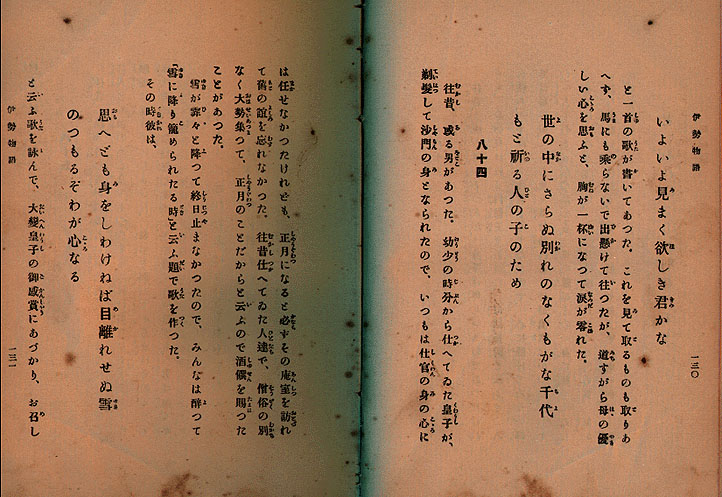 一三〇
いよいよ見まく欲しき君かな
と一首の歌が書いてあつた。これを見て取るものも取りあ
へず、馬にも乘らないで出懸けて往つたが、道すがら母の優
しい心を思ふと、胸が一杯になつて涙が零れた。
世の中にさらぬ別れのなくもがな千代
もと祈る人の子のため
八十四
往昔、或る男があつた。幼少の時分から仕へてゐた皇子が、
剃髮して沙門の身となられたので、いつもは仕官の身の心に
伊勢物語
は任せなかつたけれども、正月になると必ずその庵室を訪れ
て舊の誼を忘れなかつた。往昔仕へてゐた人達で、僧俗の別
なく大勢集つて、正月のことだからと云ふので酒饌を賜つた
ことがあつた。
雪が霏々と降つて終日止まなかつたので、みんなは醉つて
「雪に降り籠められたる時」と云ふ題で歌を作つた。
その時彼は、
思へども身をしわけねば目離れせぬ雪
のつもるぞわが心なる
と云ふ歌を詠んで、大變皇子の御感賞にあづかり、お召し
伊勢物語
一三一